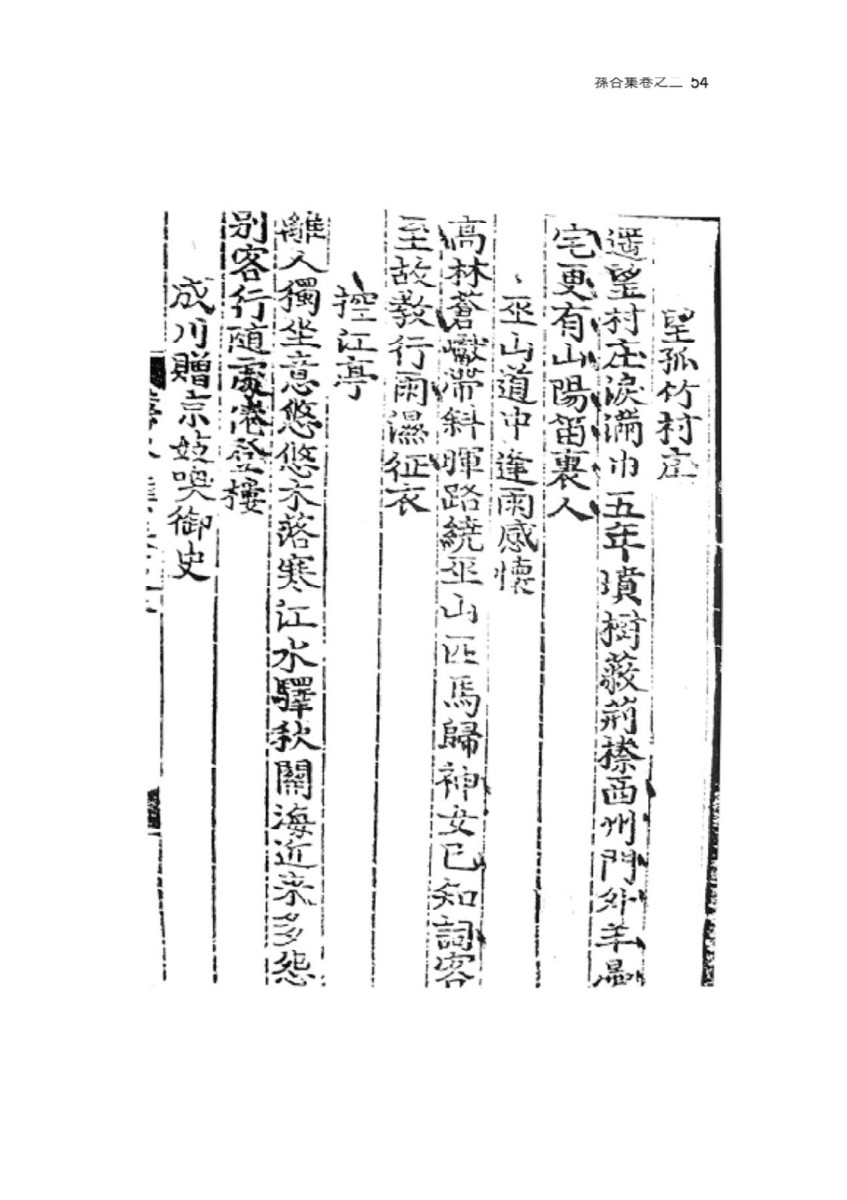 孫谷集卷之二 54
望孤竹村庄
遥望村庄淚滿巾五年墳樹蔽荊榛西州門外羊曇
宅更有山陽笛裏人
巫山道中逢雨感懷
高林蒼巘帶斜暉路繞巫山匹馬歸神女已知詞客
至故教行雨濕征衣
控江亭
離人獨坐意悠悠木落寒江水驛秋關海近來多怨
别客行隨處倦登樓
成川贈京妓喚御史